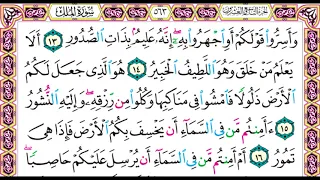 الجزء التاسع والعشرون ٥٦٣ سُورَةُ الْمُلْك
وَأَسِرُّوا قَوْلَكُمْ أَوِ اجْهَرُوا بِهِ ۖ إِنَّهُ عَلِيمٌ بِذَاتِ الصُّدُورِ ١٣ أَلَا
يَعْلَمُ مَنْ خَلَقَ وَهُوَ اللَّطِيفُ الْخَبِيرُ ١٤ هُوَ الَّذِي جَعَلَ لَكُمُ
الْأَرْضَ ذَلُولًا فَامْشُوا فِي مَنَاكِبِهَا وَكُلُوا مِنْ رِزْقِهِ ۖ وَإِلَيْهِ النُّشُورُ
١٥ ءَأَمِنْتُمْ مَنْ فِي السَّمَاءِ أَنْ يَخْسِفَ بِكُمُ الْأَرْضَ فَإِذَا هِيَ
تَمُورُ ١٦ أَمْ أَمِنْتُمْ مَنْ فِي السَّمَاءِ أَنْ يُرْسِلَ عَلَيْكُمْ حَاصِبًا ۖ